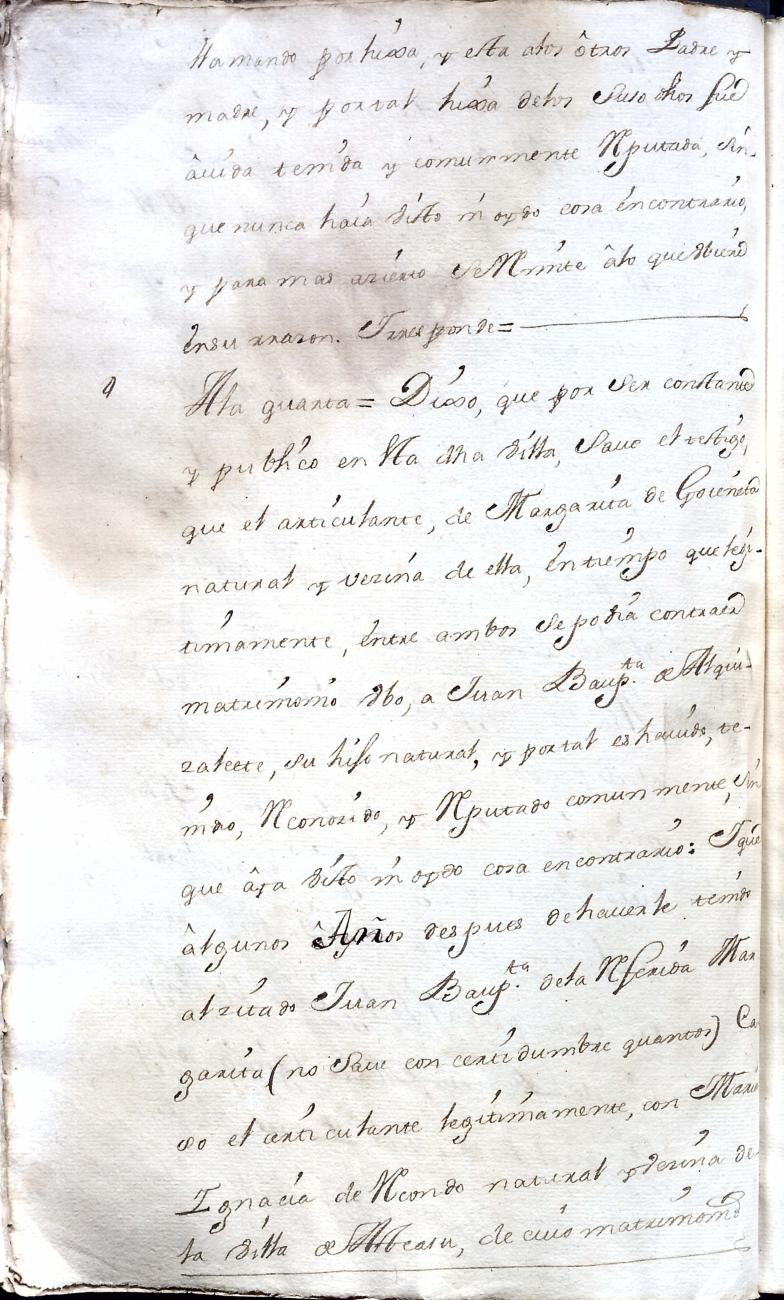 llamando por hixa, y esta alos ôtros Padre y
madre, y por tal hixa delos Suso dhos fué
âuida tenida y comunmente Rputada, Sin
que nunca haia visto ni oydo cosa én contrario,
y para mas azierto Se Rmite âlo que dbiere
énsu rrazon. Y rresponde=
4 Ala quarta= Dixo, que por Ser constante
y publico en Ntra dha Villa, Saue el testigo,
que el articulante, de Margarita de Goieneta
natural y vezina de ella, én tiempo que legi-
timamente, éntre ambos Se podia contraer
matrimonio vbo, a Juan Bap.ta de Alqui-
zalete, su hijo natural, y por tal es hauido, te-
nido, Rconozido, y Rputado comun mente, Sin
que âya visto ni oydo cosa en contrario: Y que
âlgunos Años despues de hauerle tenido
al zitado Juan Baup.ta dela Rferida Mar
garita (no Saue con certidumbre quantos) Ca
so el arti culante legitimamente, con Maria
Ignacia de Rcondo natural y Vezina de
la Villa de , de cuio matrimonio